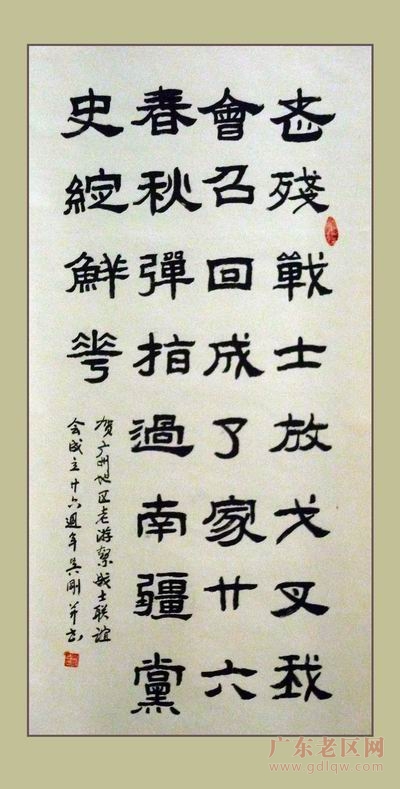 老殘戰士放戈叉我
會召回成了家廿六
春秋彈指過南疆黨
史綻鮮花
贺广州地区老游擊战士联谊
会成立廿六週年吴刚并书
广东老区网
www.gdlqw.com